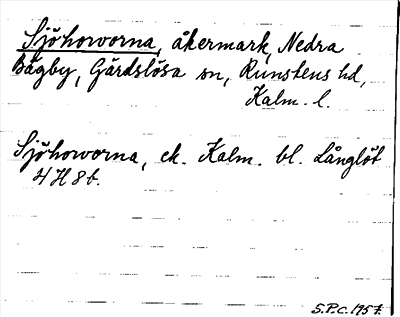 Sjöhovorna, åkermark, Nedra
Bägby, Gärdslösa sn, Runstens hd,
Kalm. l.
Sjöhovorna, ek. Kalm. bl. Långlöt
4 H 8 b.
S.P.C. 1957.